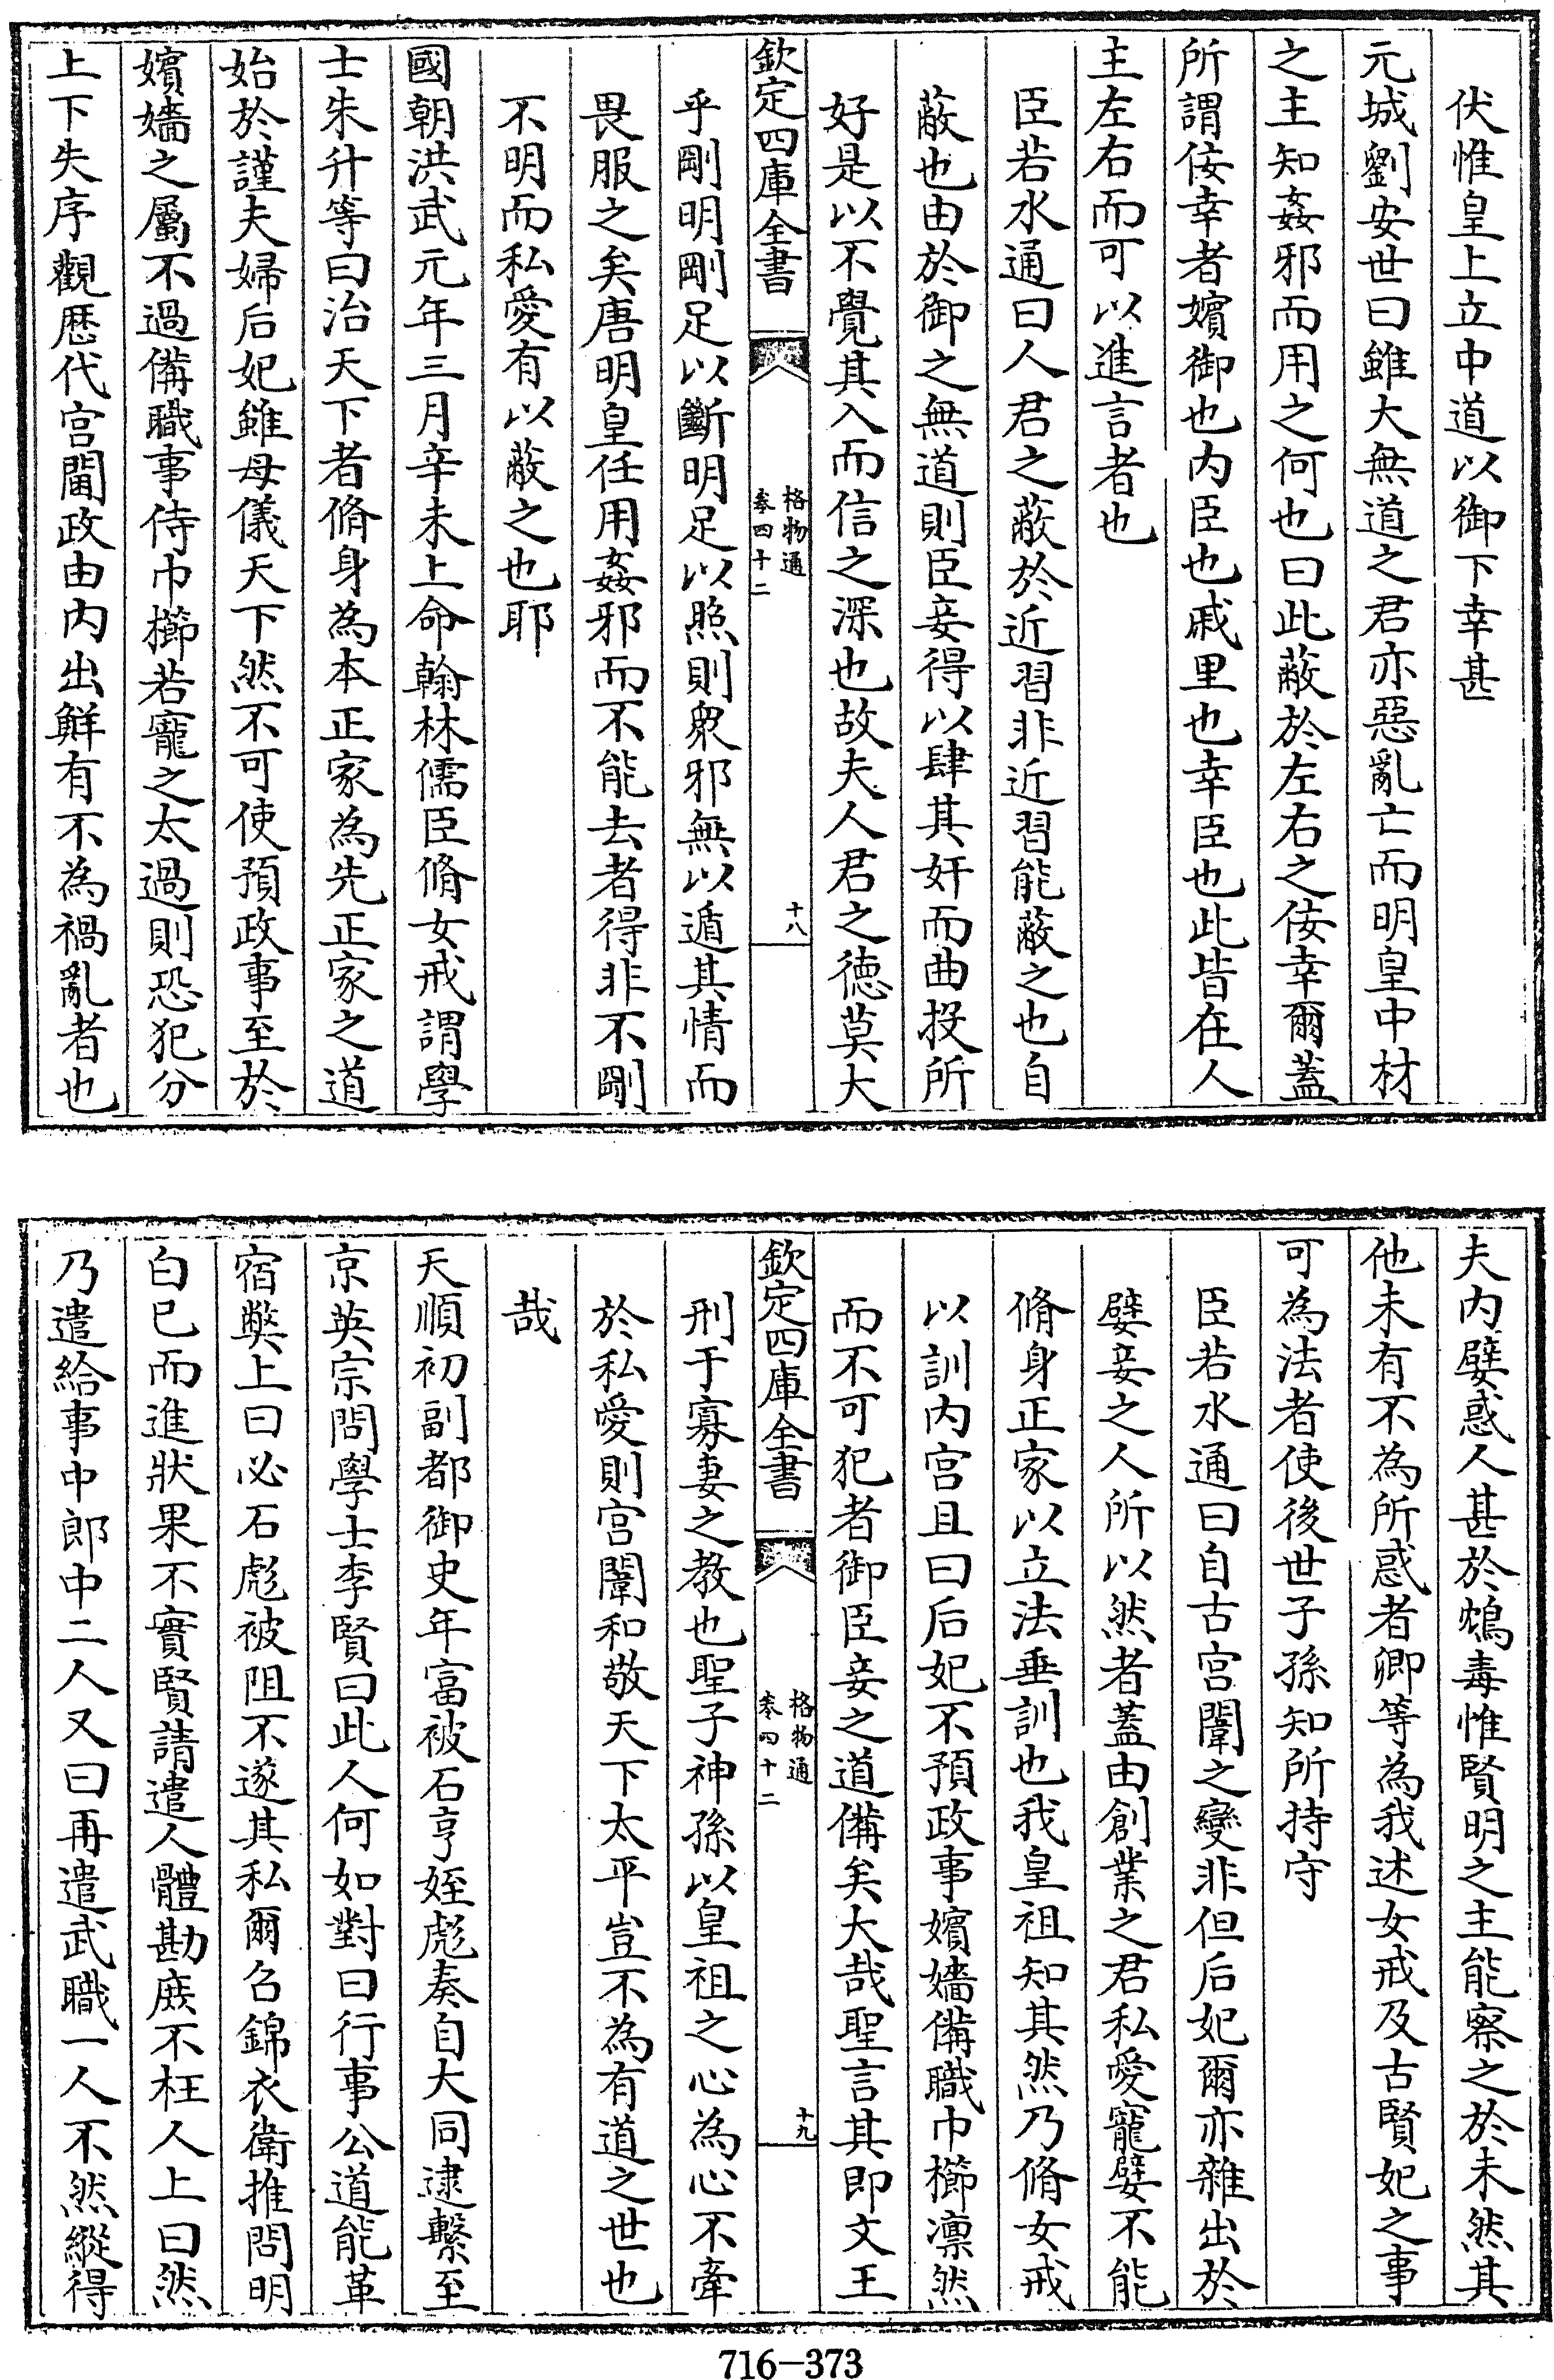 伏惟皇上立中道以御下幸甚
元城劉安世曰雖大無道之君亦惡亂亡而明皇中材
之主知姦邪而用之何也曰此蔽於左右之佞幸爾蓋
所謂佞幸者嬪御也内臣也戚里也幸臣也此皆在人
主左右而可以進言者也
臣若水通曰人君之蔽於近習非近習能蔽之也自
蔽也由於御之無道則臣妾得以肆其奸而曲投所
好是以不覺其入而信之深也故夫人君之德莫大
欽定四庫全書
格物通
卷四十二
十八
乎剛明剛足以斷明足以照則衆邪無以遁其情而
畏服之矣唐明皇任用姦邪而不能去者得非不剛
不明而私愛有以蔽之也耶
國朝洪武元年三月辛未上命翰林儒臣脩女戒謂學
士朱升等曰治天下者脩身為本正家為先正家之道
始於謹夫婦后妃雖母儀天下然不可使預政事至於
嬪嬙之屬不過備職事侍巾櫛若寵之太過則恐犯分
上下失序觀歴代宫閫政由内出鮮有不為禍亂者也
夫内嬖惑人甚於鴆毒惟賢明之主能察之於未然其
他未有不為所惑者卿等為我述女戒及古賢妃之事
可為法者使後世子孫知所持守
臣若水通曰自古宫闈之變非但后妃爾亦雜出於
嬖妾之人所以然者蓋由創業之君私愛寵嬖不能
脩身正家以立法垂訓也我皇祖知其然乃脩女戒
以訓内宫且曰后妃不預政事嬪嬙備職巾櫛凛然
而不可犯者御臣妾之道備矣大哉聖言其即文王
欽定四庫全書
格物通
卷四十二
十九
刑于寡妻之教也聖子神孫以皇祖之心為心不牽
於私愛則宫闈和敬天下太平豈不為有道之世也
哉
天順初副都御史年富被石亨姪彪奏自大同逮繫至
京英宗問學士李賢曰此人何如對曰行事公道能革
宿弊上曰必石彪被阻不遂其私爾召錦衣衛推問明
白已而進狀果不實賢請遣人體勘庶不枉人上曰然
乃遣給事中郎中二人又曰再遣武職一人不然縱得
716-373